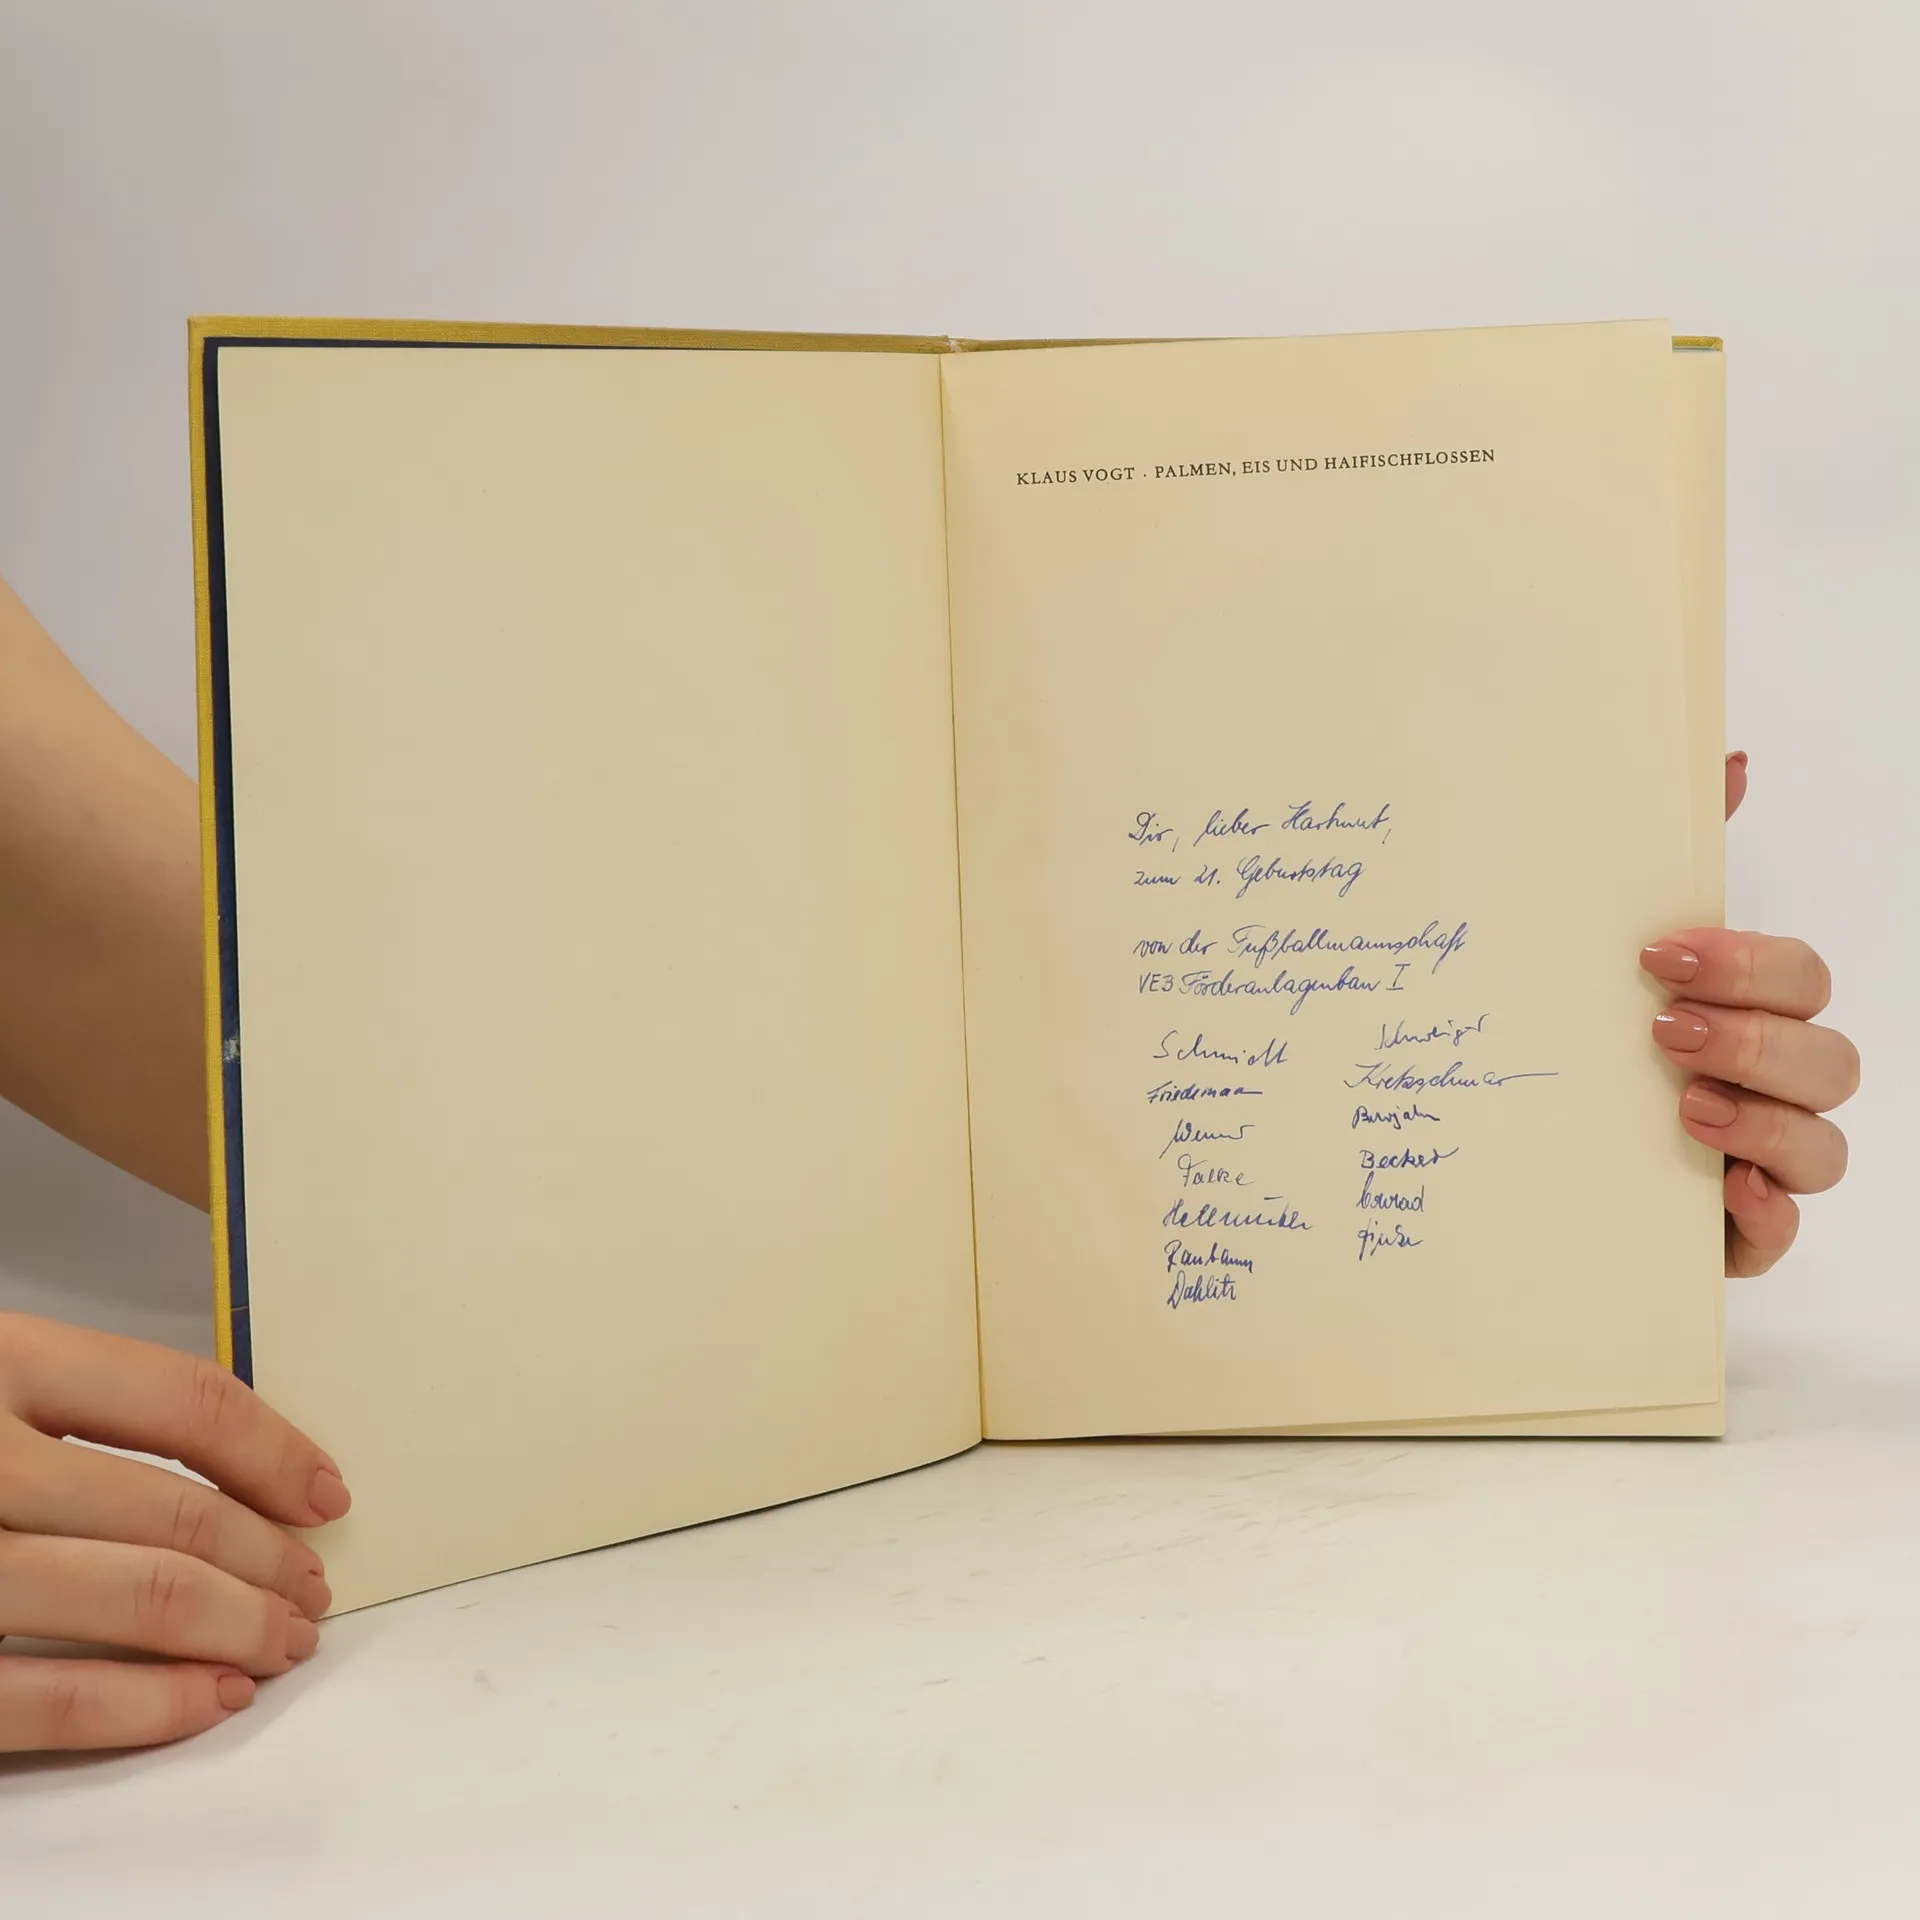 KLAUS VOGT · PALMEN, EIS UND HAIFISCHFLOSSEN
Dir, lieber Hartmut,
zum 21. Geburtstag
von der Fußballmannschaft
VEB Förderanlagenbau I
Schmidt
Friedeman
Werner
Falke
Raubaum
Dahlitz
Schweiger
Kretzschmar
Becker
Conrad